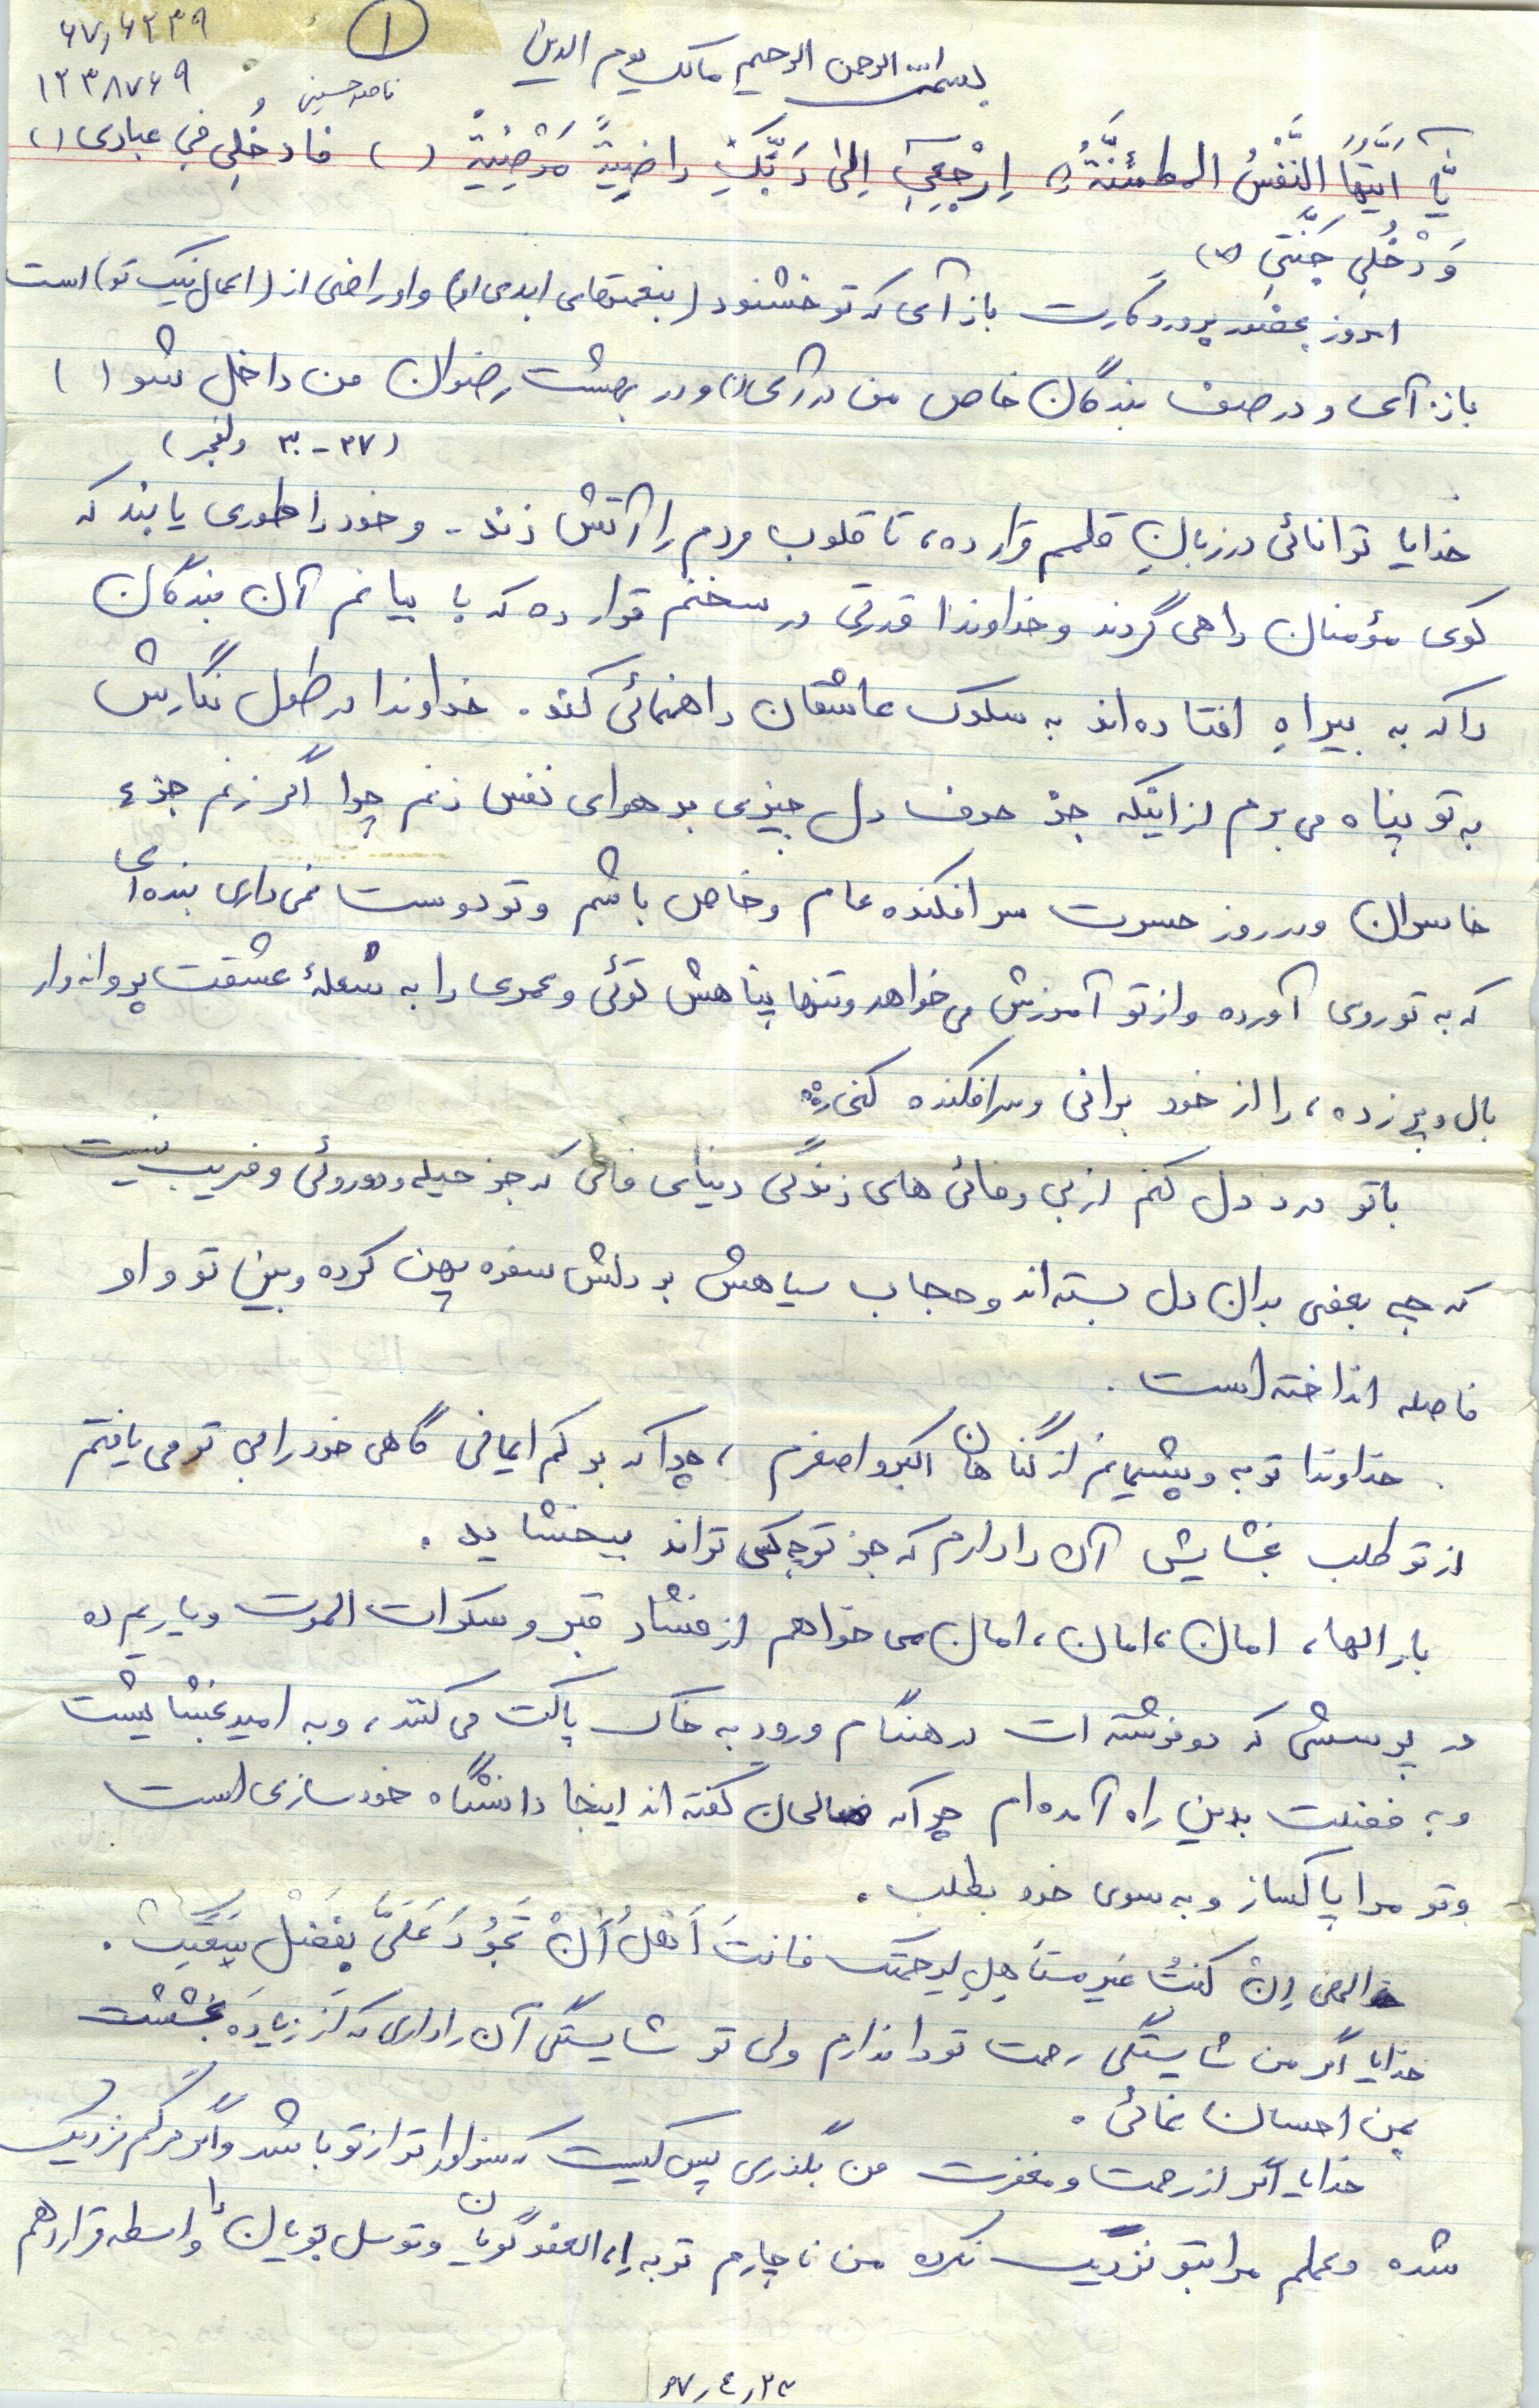 ۶۷٫۶۲۳۹
۱
۱۲۳۸۷۶۹
بسم الله الرحمن الرحیم مالک یوم الدین
یٰا اَیَّتُهَا النَّفْسُ المطمئنَّةُ اِرْجِعِی اِلیٰ رَبِّکِ راضِیةً مَرْضِیَّةً ( ) فادخُلِی فِی عبادی ( )
وَدْخُلِی جَنَّتِی
امروز بحضور پروردگارت باز آی که تو خشنود (بنعمتهای ابدی او) و او راضی از (اعمال نیک تو) است
باز آی و در صف بندگان خاص من در آی () و در بهشت رضوان من داخل شو ( )
(۲۷-۳۰ ولفجر)
خدایا توانائی در زبانِ قلمم قرار ده، تا قلوب مردم را آتش زند - و خود را طوری یابند که
کوی مؤمنان راهی گردند و خداوندا قدرتی در سخنم قرار ده که با بیانم آن بندگان
را که به بیراهِ افتاده‌اند به سلوک عاشقان راهنمائی کند . خداوندا در طول نگارش
به تو پناه می برم از اینکه جز حرف دل چیزی بر هوای نفس زنم چرا اگر زنم جزء
خاسران و در روز حسرت سرافکنده عام و خاص باشم و تو دوست نمی داری بنده‌ای
که به تو روی آورده و از تو آمرزش می خواهد و تنها پناهش توئی و عمری را به شعلهٔ عشقت پروانه وار
بال و پر زده، را از خود برانی و سرافکنده کنی
با تو درد دل کنم از بی وفائی های زندگی دنیای فانی که جز حیله و دوروئی و فریب نیست
که چه بعضی بدان دل بسته‌اند و حجاب سیاهش بر دلش سفره پهن کرده و بین تو و او
فاصله انداخته است .
خداوندا توبه و پشیمانم از گناهان اکبر و اصغرم ، چرا که بر کم ایمانی گاهی خود را بی تو می یافتم
از تو طلب بخشایش آن را دارم که جز تو چه کسی تواند ببخشاید .
بار الها، امان، امان، امان می خواهم از فشار قبر و سکرات الموت و یاریم ده
در پرسشی که دو فرشته ات در هنگام ورود به خاک پاکت می کنند، و به امید بخشایشت
و به فضلیت بدین راه آمده‌ام چرا که صالحان گفته اند اینجا دانشگاه خودسازی است
و تو مرا پاکساز و به سوی خود بطلب .
الهی اِنْ کنتُ غیر مستأهِلٍ لِرحمتک فانتَ اَهْلُ اَنْ تَجُودَ عَلَیَّ بِفَضْلِ سِعَتِک .
خدایا اگر من شایستگی رحمت تو را ندارم ولی تو شایستگی آن را داری که از زیاده بخششت
بمن احسان نمائی .
خدایا اگر از رحمت و مغفرت من بگذری پس کیست که سزاوارتر از تو باشد و اگر مرگم نزدیک
شده و عملم مرا بتو نزدیک نکرده من ناچارم توبه العفو گویان و توسل جویان را واسطه قرار دهم
۶۷٫۴٫۲۳